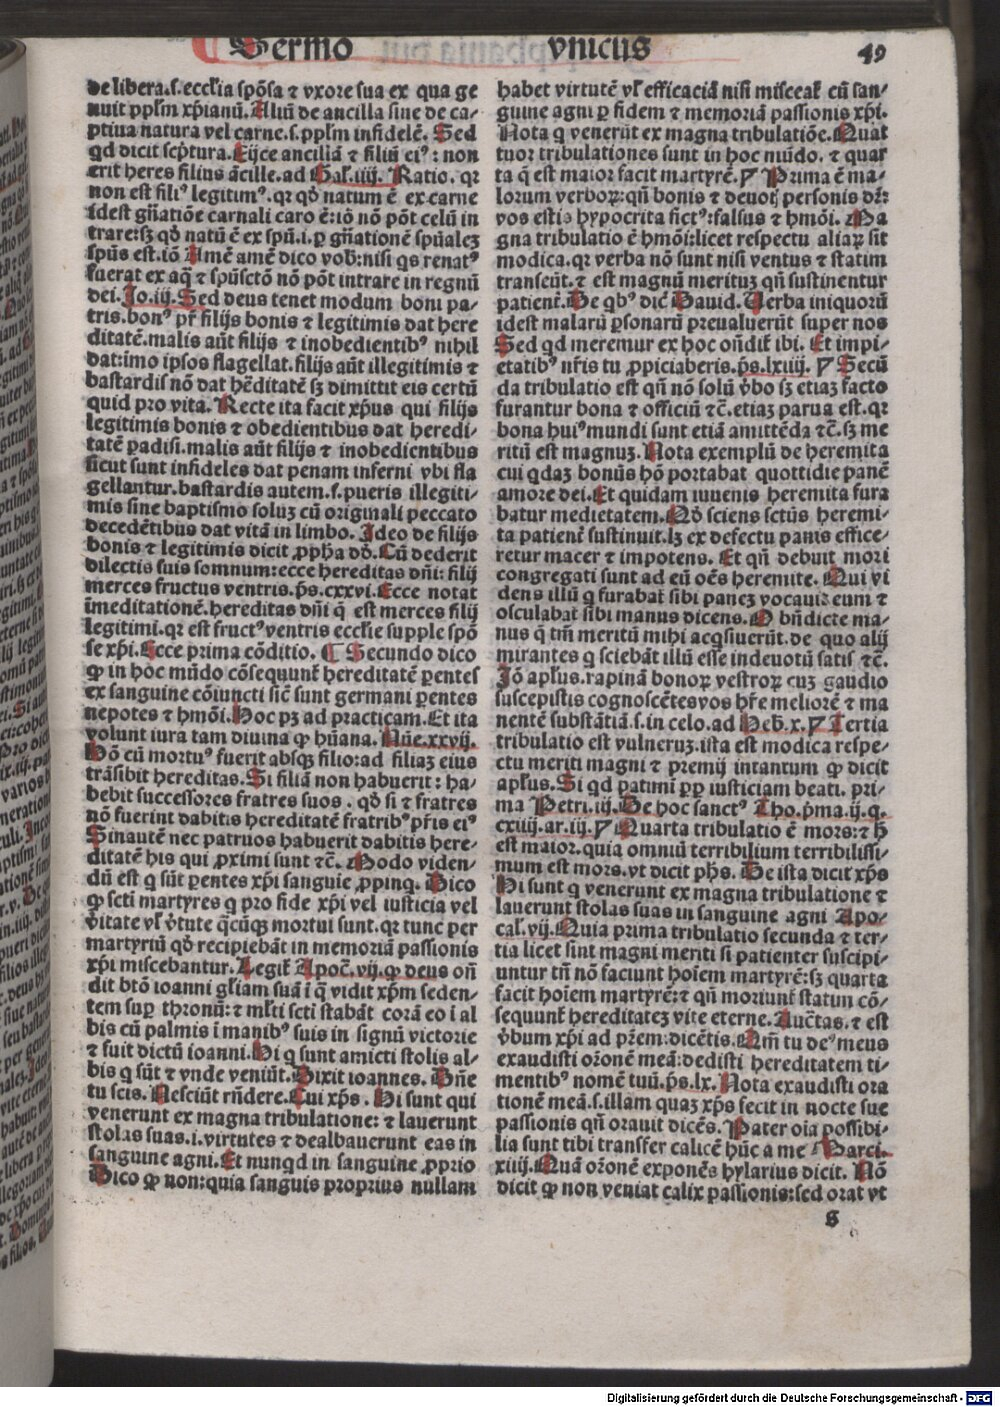 Sermo vnicus 49
de libera.s. eccl'ia spōsa ⁊ vxore sua ex qua ge
nuit ppl'm xp̄ianū. Aliū de ancilla siue de ca-
ptiua natura vel carne.s. ppl'm infidelē. Sed
qd dicit scp̄tura. Eijce ancillā ⁊ filiū eiꝰ: non
erit heres filius ācille. ad Gal'.iiij. Ratio. qꝛ
non est filiꝰ legitimꝰ. qꝛ qd̄ natum ē ex carne
idest gn̄atiōe carnali caro ē: iō nō pōt celū in
trare: sꝫ qd̄ natū ē ex spū.i. ꝑ gn̄ationē spūaleꝫ
spūs est. iō Amē amē dico vob̄: nisi qs renatꝰ
fuerat ex aq̄ ⁊ spūsctō nō pōt intrare in regnū
dei. Jo.iij. Sed deus tenet modum boni pa-
tris. bonꝰ pr̄ filijs bonis ⁊ legitimis dat here
ditatē. malis aūt filijs ⁊ inobedientibꝰ nihil
dat: imo ipsos flagellat. filijs aūt illegitimis ⁊
bastardis nō dat hēditatē sꝫ dimittit eis certū
quid pro vita. Recte ita facit xp̄us qui filijs
legitimis bonis ⁊ obedientibus dat heredi-
tatē padisi. malis aūt filijs ⁊ inobedientibus
sicut sunt infideles dat penam inferni vbi fla
gellantur. bastardis autem.s. pueris illegiti-
mis sine baptismo soluꝫ cū originali peccato
decedētibus dat vitā in limbo. Ideo de filijs
bonis ⁊ legitimis dicit ꝓph̄a dō. Cū dederit
dilectis suis somnum: ecce hereditas dn̄i: filij
merces fructus ventris. ps̄.cxxvi. Ecce notat
īmeditationē. hereditas dn̄i q̄ est merces filij
legitimi. qꝛ est fructꝰ ventris eccl'ie supple spō
se xp̄i. Ecce prima cōditio. ¶ Secundo dico
ꝙ in hoc mūdo cōsequunt̄ hereditatē ꝑentes
ex sanguine cōiuncti sic̄ sunt germani ꝑentes
nepotes ⁊ hmōi. Hoc pꝫ ad practicam. Et ita
volunt iura tam diuina ꝙ hūana. Nūe.xxvij.
Hō cū mortuꝰ fuerit absqꝫ filio: ad filiaꝫ eius
trāsibit hereditas. Si filiā non habuerit: ha-
bebit successores fratres suos. qd̄ si ⁊ fratres
nō fuerint dabitis hereditatē fratribꝰ pr̄is eiꝰ
Sinautē nec patruos habuerit dabitis here-
ditatē his qui ꝓximi sunt ⁊c̄. Modo viden-
dū est q sūt ꝑentes xp̄i sanguie ꝓpinq. Dico
ꝙ scti martyres q pro fide xp̄i vel iusticia vel
v̄itate vl' v̄tute q̄cūqꝫ mortui sunt. qꝛ tunc per
martyriū qd̄ recipiebāt in memoriā passionis
xp̄i miscebantur. Legit̄ Apoc̄.vij. ꝙ deus on̄
dit btō ioanni gl'iam suā ī q̄ vidit xp̄m seden-
tem suꝑ thronū: ⁊ ml'ti scti stabāt corā eo ī al
bis cū palmis ī manibꝰ suis in signū victorie
⁊ fuit dictū ioanni. Hi q sunt amicti stolis al-
bis q sūt ⁊ vnde veniūt. Dixit ioannes. Dn̄e
tu scis. Nesciūt rn̄dere. Cui xp̄s. Hi sunt qui
venerunt ex magna tribulatione: ⁊ lauerunt
stolas suas.i. virtutes ⁊ dealbauerunt eas in
sanguine agni. Et nunqd in sanguine ꝓprio
Dico ꝙ non: quia sanguis proprius nullam
habet virtutē vl' efficaciā nisi misceat̄ cū san-
guine agni ꝑ fidem ⁊ memoriā passionis xp̄i.
Nota q venerūt ex magna tribulatiōe. Quat
tuor tribulationes sunt in hoc mūdo. ⁊ quar
ta q̄ est maior facit martyrē. Prima ē ma-
lorum verboꝝ: qn̄ bonis ⁊ deuotꝭ personis dr̄:
vos estis hypocrita fictꝰ: falsus ⁊ hmōi. Ma
gna tribulatio ē hmōi: licet respectu aliaꝝ sit
modica. qꝛ verba nō sunt nisi ventus ⁊ statim
transeūt. ⁊ est magnū merituꝫ qn̄ sustinentur
patient̄. De qbꝰ dic̄ Dauid. Verba iniquorū
idest malarū ꝑsonarū preualuerūt super nos
Sed qd meremur ex hoc on̄dit̄ ibi. Et impi-
etatibꝰ nr̄is tu ꝓpiciaberis. ps̄.lxiiij. Secū
da tribulatio est qn̄ nō solū v̄bo sꝫ etiaꝫ facto
furantur bona ⁊ officiū ⁊c̄. etiaꝫ parua est. qꝛ
bona huiꝰ mundi sunt etiā amittēda ⁊c̄. sꝫ me
ritū est magnuꝫ. Nota exemplū de heremita
cui qdaꝫ bonūs hō portabat quottidie panē
amore dei. Et quidam iuuenis heremita fura
batur medietatem. Qd̄ sciens sctūs heremi-
ta patient̄ sustinuit. lꝫ ex defectu panis effice-
retur macer ⁊ impotens. Et qn̄ debuit mori
congregati sunt ad eū oēs heremite. Qui vi
dens illū q furabat̄ sibi paneꝫ vocauit eum ⁊
osculabat̄ sibi manus dicens. O bn̄dicte ma-
nus q̄ tm̄ meritū mihi acqsiuerūt. de quo alij
mirantes q sciebāt illū esse indeuotū satis ⁊c̄.
Jō apl'us. rapinā bonoꝝ vestroꝝ cuꝫ gaudio
suscepistis cognoscētes vos hr̄e meliorē ⁊ ma
nentē substātiā.s. in celo. ad Heb̄.x. Tertia
tribulatio est vulneruꝫ. ista est modica respe-
ctu meriti magni ⁊ premij intantum ꝙ dicit
apl'us. Si qd patimī ꝓp iusticiam beati. pri-
ma Petri.iij. De hoc sanctꝰ Tho. p̄ma.ij.q.
cxiiij.ar.iij. Quarta tribulatio ē mors: ⁊ h̄
est maior. quia omniū terribilium terribilissi-
mum est mors. vt dicit phs̄. De ista dicit xp̄s
Hi sunt q venerunt ex magna tribulatione ⁊
lauerunt stolas suas in sanguine agni Apo-
cal'.vij. Quia prima tribulatio secunda ⁊ ter-
tia licet sint magni meriti si patienter suscipi-
untur tn̄ nō faciunt hoiem martyrē: sꝫ quarta
facit hoiem martyrē: ⁊ qn̄ moriunt̄ statun cō-
sequunt̄ hereditateꝫ vite eterne. Auct̄as. ⁊ est
v̄bum xp̄i ad pr̄em: dicētis. Qm̄ tu deꝰ meus
exaudisti or̄onē meā: dedisti hereditatem ti-
mentibꝰ nomē tuū. ps̄.lx. Nota exaudisti ora
tionē meā.s. illam quaꝫ xp̄s fecit in nocte sue
passionis qn̄ orauit dicēs. Pater oīa possibi-
lia sunt tibi transfer calicē hūc a me Marci.
xiiij. Quā or̄onē exponēs hylarius dicit. Nō
dicit ꝙ non veniat calix passionis: sed orat vt
G
Digitalisierung gefördert durch die Deutsche Forschungsgemeinschaft - DFG